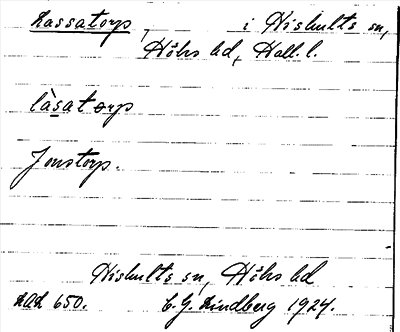 Lassatorp, i Hishults sn,
Höks hd, Hall. l.
làsatorp
Jonstorp.
Hishults sn, Höks hd
Lad 650. C. G. Lindberg 1924.